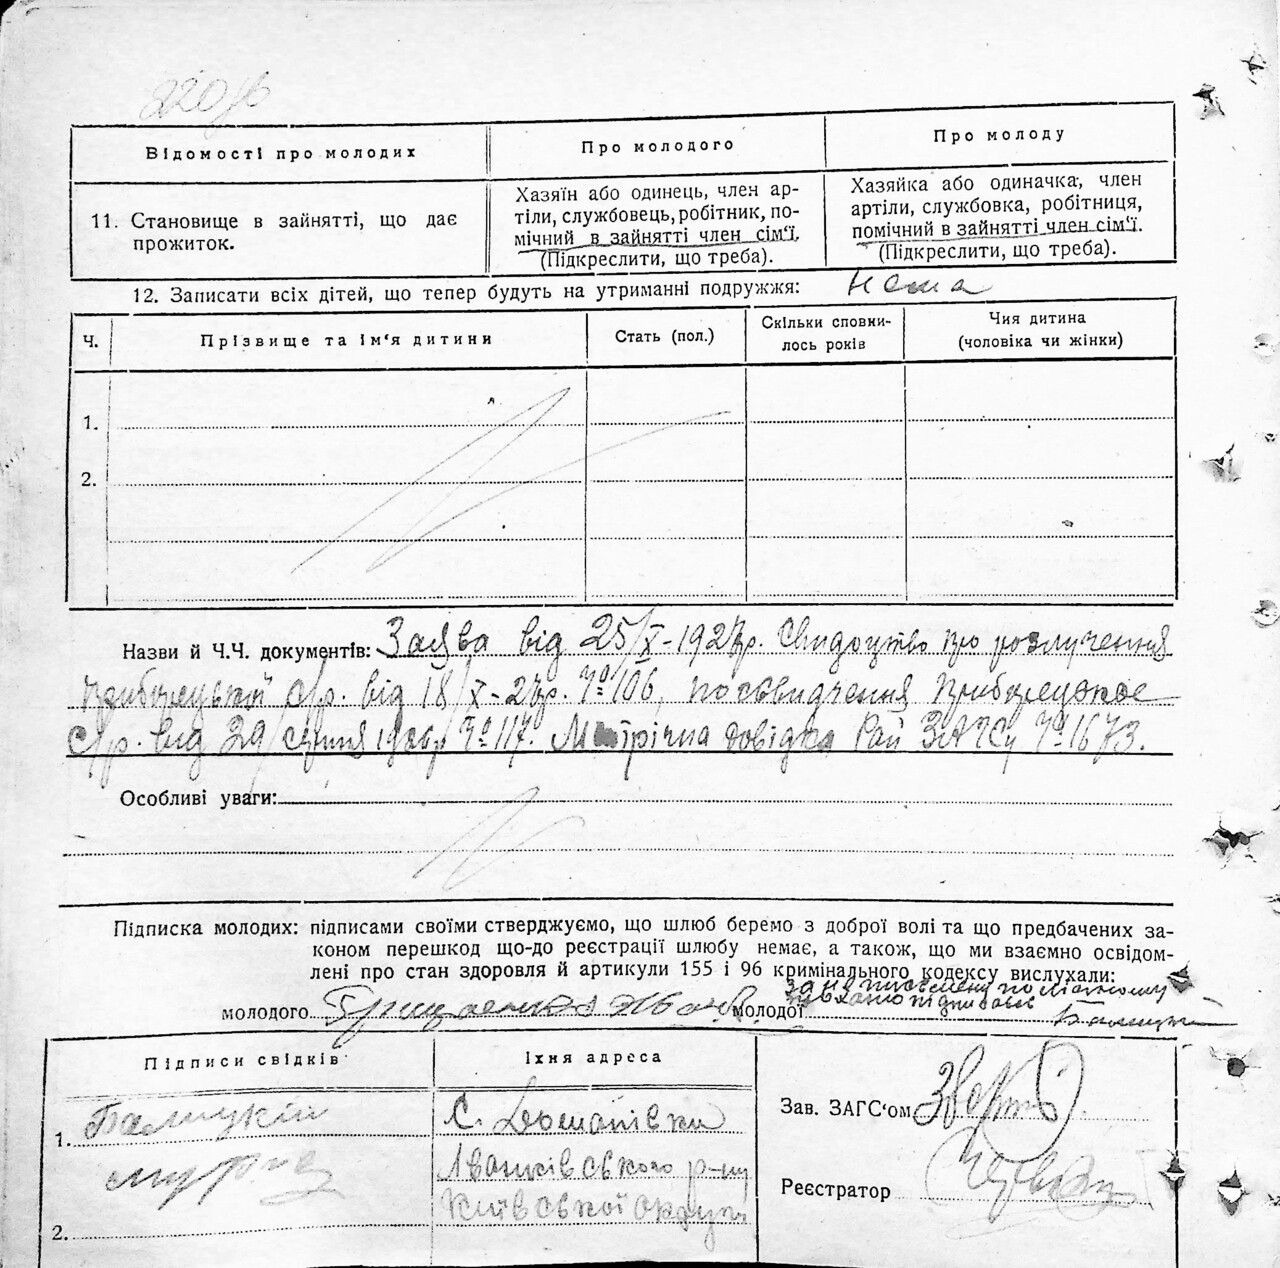 220зв
Відомості про молодих
Про молодого
Про молоду
11. Становище в зайнятті, що дає
прожиток.
Хазяїн або одинець, член ар-
тіли, службовець, робітник, по-
мічний в зайнятті член сім'ї.
(Підкреслити, що треба).
Хазяйка або одиначка, член
артіли, службовка, робітниця,
помічний в зайнятті член сім'ї.
(Підкреслити, що треба).
12. Записати всіх дітей, що тепер будуть на утриманні подружжя: Нема
Ч.
Прізвище та ім'я дитини
Стать (пол.)
Скільки сповни-
лось років
Чия дитина
(чоловіка чи жінки)
1.
2.
Назви й Ч.Ч. документів: Заява від 25/X-1927р. Свидоцтво про розлучення
с/р. від 18/X-27р. № 106, посвидчення
с/р. від 29/серпня 1926р № 117. Метрічна довідка Рай ЗАГСу № 1673.
Особливі уваги:
Підписка молодих: підписами своїми стверджуємо, що шлюб беремо з доброї волі та що предбачених за-
коном перешкод що-до реєстрації шлюбу немає, а також, що ми взаємно освідом-
лені про стан здоровля й артикули 155 і 96 кримінального кодексу вислухали:
молодого Грищенко Іван молодої за неписьмену по її
підписався
Підписи свідків
Їхня адреса
1.
С.
Іванківського р-ну
Київської округи
2.
Зав. ЗАГС'ом
Реєстратор